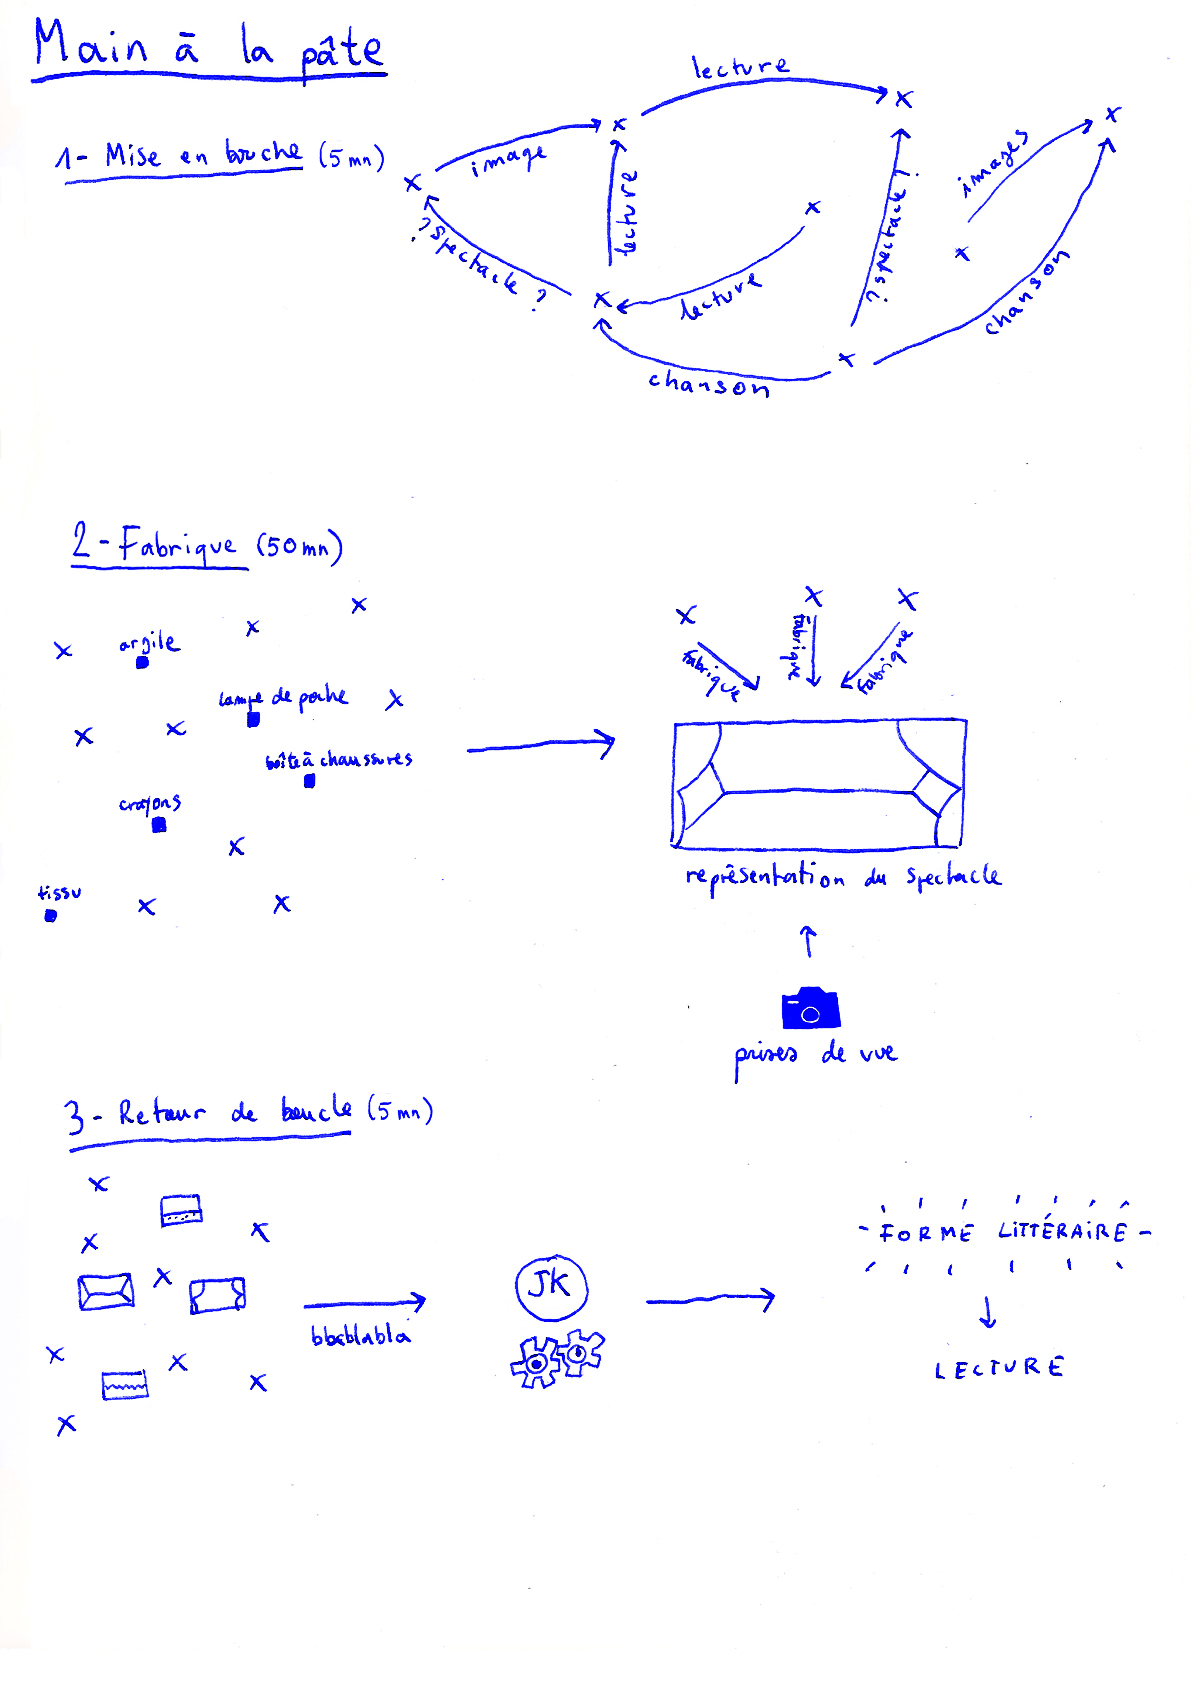 Main à la pâte
1- Mise en bouche (5 mn)
lecture
image
images
lecture
? spectacle ?
lecture
? spectacle ?
chanson
chanson
2- Fabrique (50 mn)
argile
lampe de poche
boîte à chaussures
crayons
tissu
Fabrique
Fabrique
Fabrique
représentation du spectacle
prises de vue
3- Retour de boucle (5 mn)
JK
blablabla
- FORME LITTÉRAIRE -
LECTURE